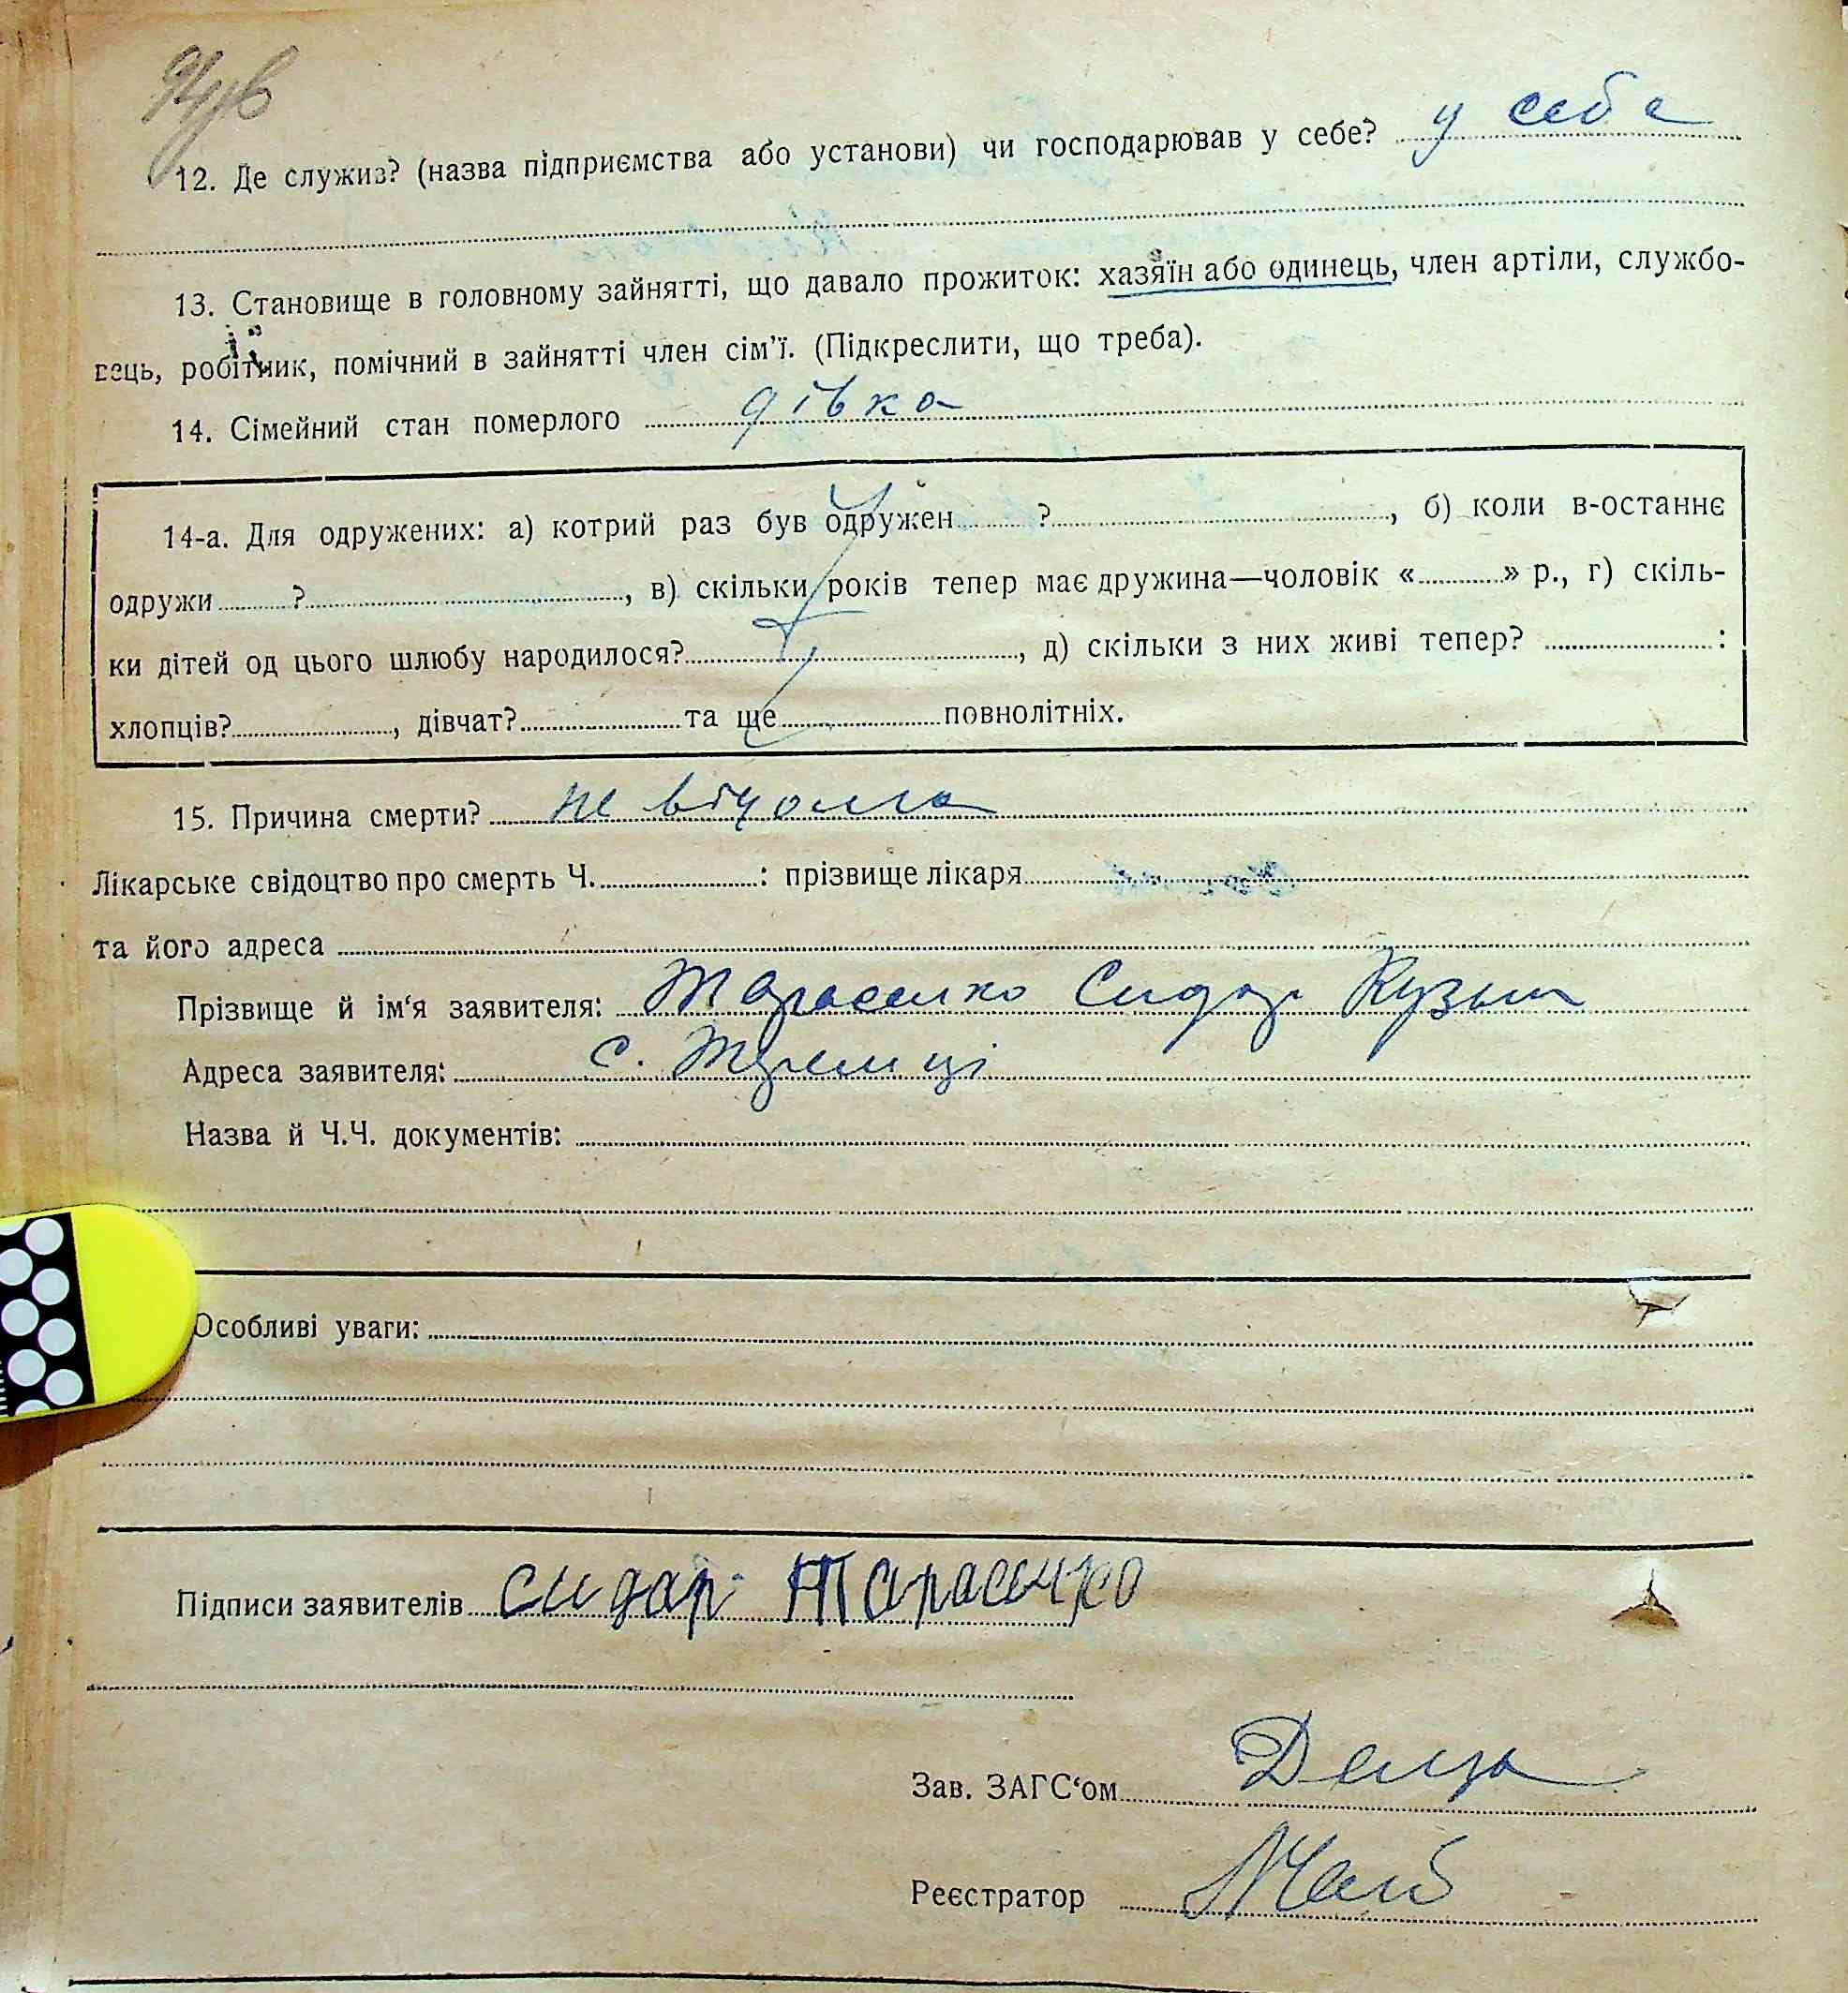 12. Де служив? (назва підприємства або установи) чи господарював у себе? у себе
13. Становище в головному зайнятті, що давало прожиток: хазяїн або одинець, член артіли, службо-
вець, робітник, помічний в зайнятті член сім’ї. (Підкреслити, що треба).
14. Сімейний стан померлого дівка
14-а. Для одружених: а) котрий раз був одружен ? , б) коли в-останнє
одружи ? , в) скільки років тепер має дружина—чоловік « » р., г) скіль-
ки дітей од цього шлюбу народилося? , д) скільки з них живі тепер? :
хлопців? , дівчат? та ще повнолітніх.
15. Причина смерти? не відома
Лікарське свідоцтво про смерть Ч. : прізвище лікаря
та його адреса
Прізвище й ім‘я заявителя: Тарасенко Сидор Кузьм
Адреса заявителя: с.
Назва й Ч.Ч. документів:
Особливі уваги:
Підписи заявителів сидар Тарасенко
Зав. ЗАГС‘ом
Реєстратор